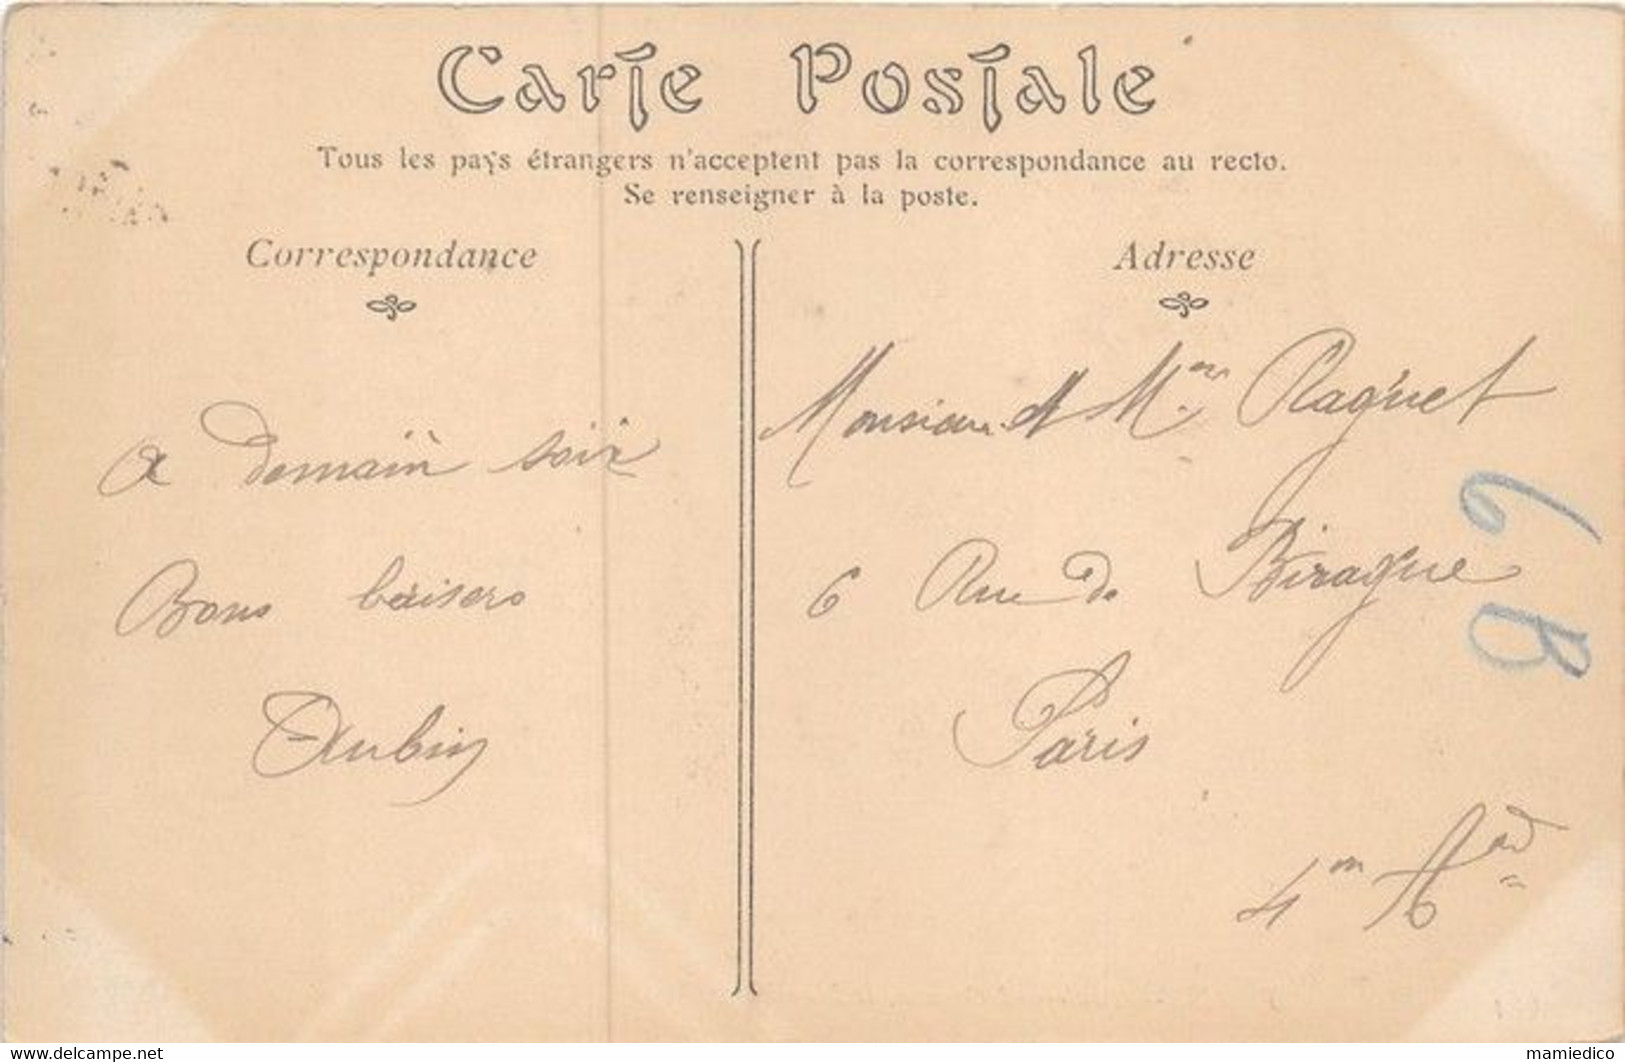 Carte Postale
Tous les pays étrangers n'acceptent pas la correspondance au recto.
Se renseigner à la poste.
Correspondance
a demain soir
Bons baisers
Aubin
Adresse
Monsieur et Mme Raguet
6 Rue de Birague
Paris
4m Ard
6 B
delcampe.net
mamiedico